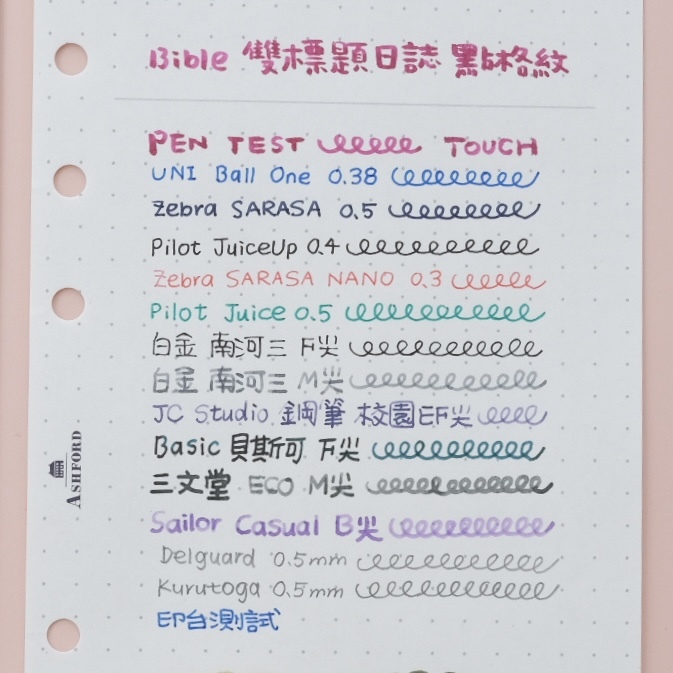 Bible 雙標題日誌 點格紋
PEN TEST TOUCH
UNI Ball One 0.38
Zebra SARASA 0.5
Pilot JuiceUp 0.4
Zebra SARASA NANO 0.3
Pilot Juice 0.5
白金 南河三 F尖
白金 南河三 M尖
JC Studio 鋼筆 校園EF尖
Basic 貝斯可 F尖
三文堂 ECO M尖
Sailor Casual B尖
Delguard 0.5mm
Kurutoga 0.5mm
印台測試
ASHFORD